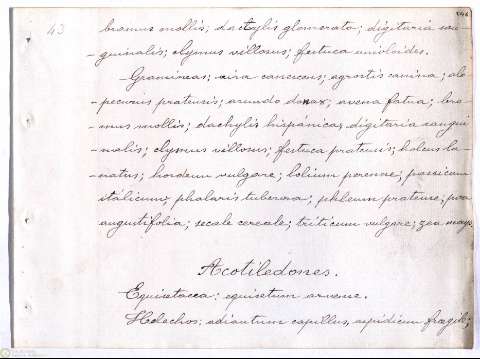 43
bromus mollis; dactylis glomerata; digitaria san-
-guinalis; elymus villosus; festuca unioloides.
-Gramineas; aira canescens; agrostis canina; alo-
-pecuris pratensis; arundo donax; avena fatua; bro-
-mus mollis; dachylis hispánica; digitaria sangui-
-nalis; elymus villosus; festuca pratensis; holcus la-
-natus; hordeum vulgare; lolium perenne; panicum
itálicum; phalaris tuberosa; phleum pratense; poa
angustifolia; secale cereale; triticum vulgare; zea mays.
Acotiledones.
Equisetacea: equisetum arvense.
Helechos: adiantum capillus, aspidicum fragile;